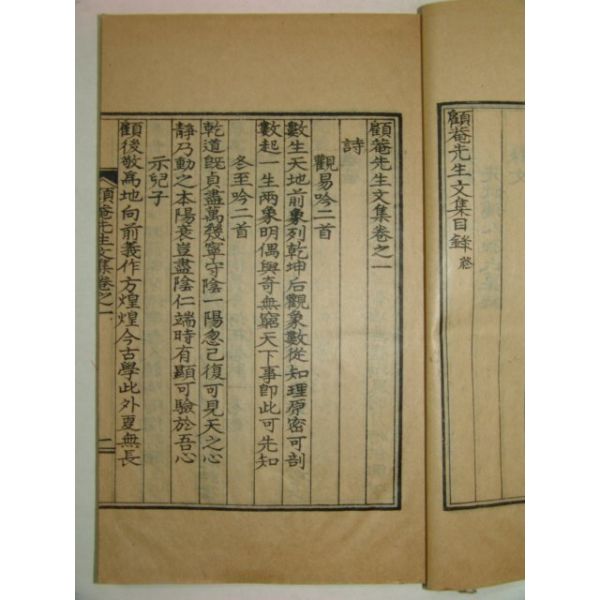 顧菴先生文集目錄終
顧菴先生文集卷之一
詩
觀易吟二首
數生天地前象列乾坤后觀象數從知理原密可剖
數起一生兩象明偶與奇無窮天下事卽此可先知
冬至吟二首
乾道旣貞盡萬幾寧守陰一陽忽已復可見天之心
靜乃動之本陽衰豈盡陰仁端時有顯可驗於吾心
示兒子
顧後敬爲地向前義作方煌煌今古學此外更無長
顧菴先生文集卷之一
二